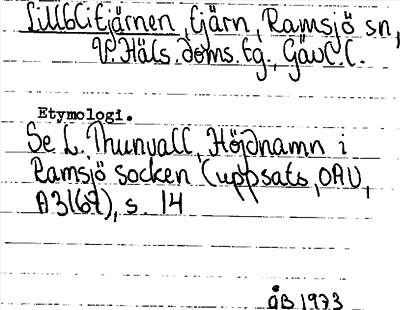 Lillblitjärnen, tjärn, Ramsjö sn,
V. Häls. doms. tg., Gävl. l.
Etymologi.
Se L. Thunvall, Höjdnamn i
Ramsjö socken (uppsats, OAU,
A3(67), s. 14
ÅB 1973